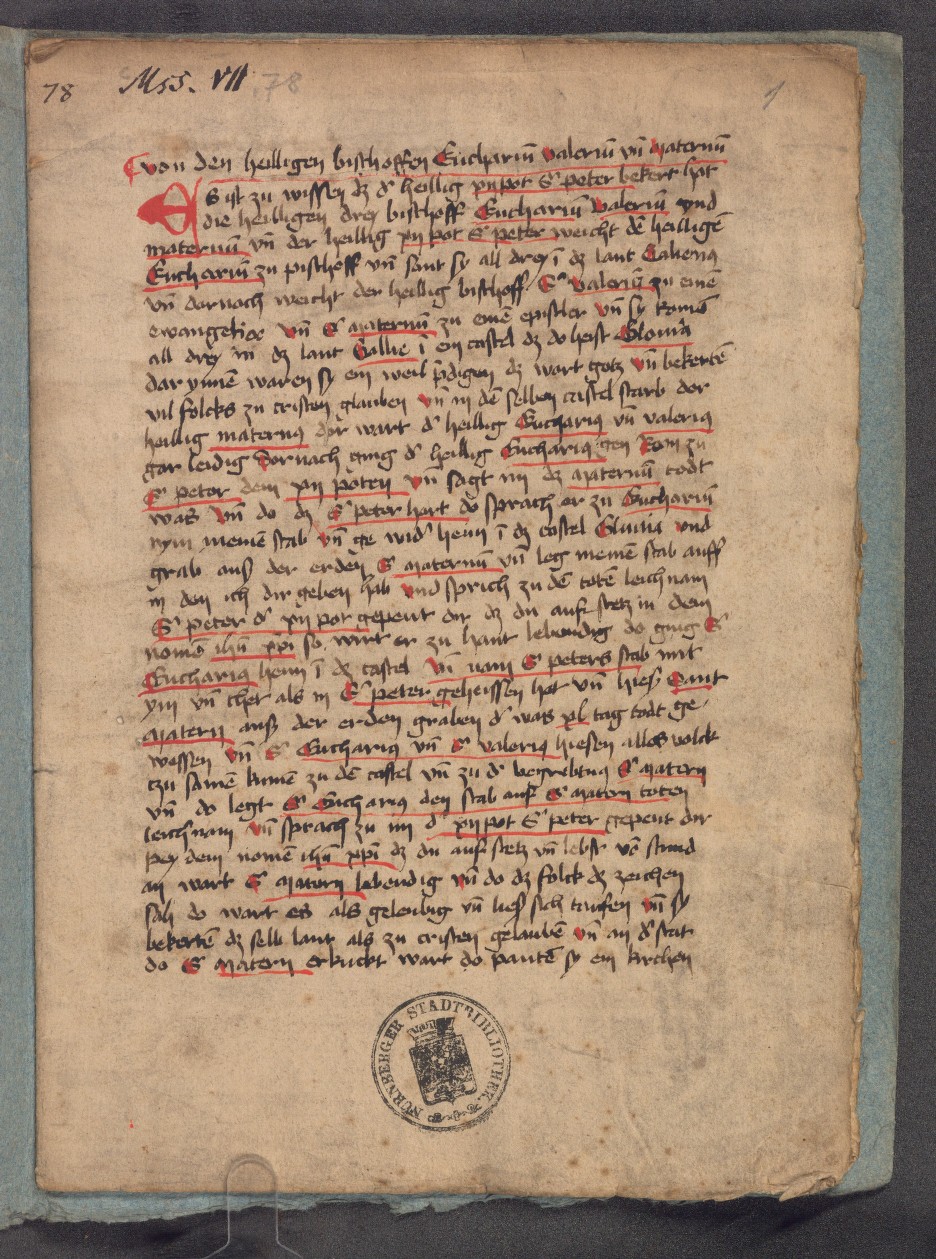 78 Mss. VII. 78 1
Von den heilligen bischoffen Euchariū valeriū vn̄ Maternū
Es ist zu wissen dz d' heillig xij pot S peter bekert hat
die heilligen drey bischoff Euchariū valeriū und
maternū vn̄ der heillig xij pot S peter weicht dē heilligē
Euchariū zu pischoff vn̄ sant sy all drey ī dz lant Galienꝰ
vn̄ darnach weicht der heillig bischoff S valeriū zu einē
ewangelier vn̄ S maternū zu einē epistler vn̄ sy komē
all drey in dz lant Gallie ī ein castel dz do heist
dar ynnē waren sy ein weil p̄digen dz wort gotz vn̄ bekertē
vil folcks zu cristen glauben vn̄ in dē selben castel starb der
heillig maternꝰ wart d' heillig Euchariꝰ vn̄ valeriꝰ
gar leidig Dornach ging d' heillig Euchariꝰ gen Rom zu
S peter dem xij poten vn̄ sagt im dz maternū todt
was vn̄ do dz S peter hort do sprach er zu Euchariū
nym meinē stab vn̄ ge wid' heim ī dz castel und
grab auß der erden S maternū vn̄ leg meinē stab auff
in den ich dir geben hab vnd sprich zu dē totē leichnam
S peter d' xij pot gepeut dir dz du auf stetz in dem
nomē ihū xp̄i so wirt er zu hant lebendig do ging S
Euchariꝰ heim ī dz castel vn̄ nam S peters stab mit
ym vn̄ als in S peter geheissen hat vn̄ hieß Sant
matern auß der erden graben d' was xl tag todt ge-
wessen vn̄ S Euchariꝰ vn̄ S valeriꝰ hiesen alles volck
czu samē kumē zu dē castel vn̄ zu d' begrebtnꝰ S matern
vn̄ do legt S Euchariꝰ den stab auf S matern toten
leichnam vn̄ sprach zu im d' xij pot S peter gepeut dir
pey dem nomē ihū xp̄i dz du auf stetz vn̄ lebst vō stund
an wart S matern lebendig vn̄ do dz folck dz zeichen
sah do wart es als geleubig vn̄ ließ sich taufen vn̄ sy
bekertē dz selb lant als zu cristen gelaubē vn̄ an d' stat
do S matern erkuckt wart do pautē sy ein kirchen
NÜRNBERGER STADTBIBLIOTHEK